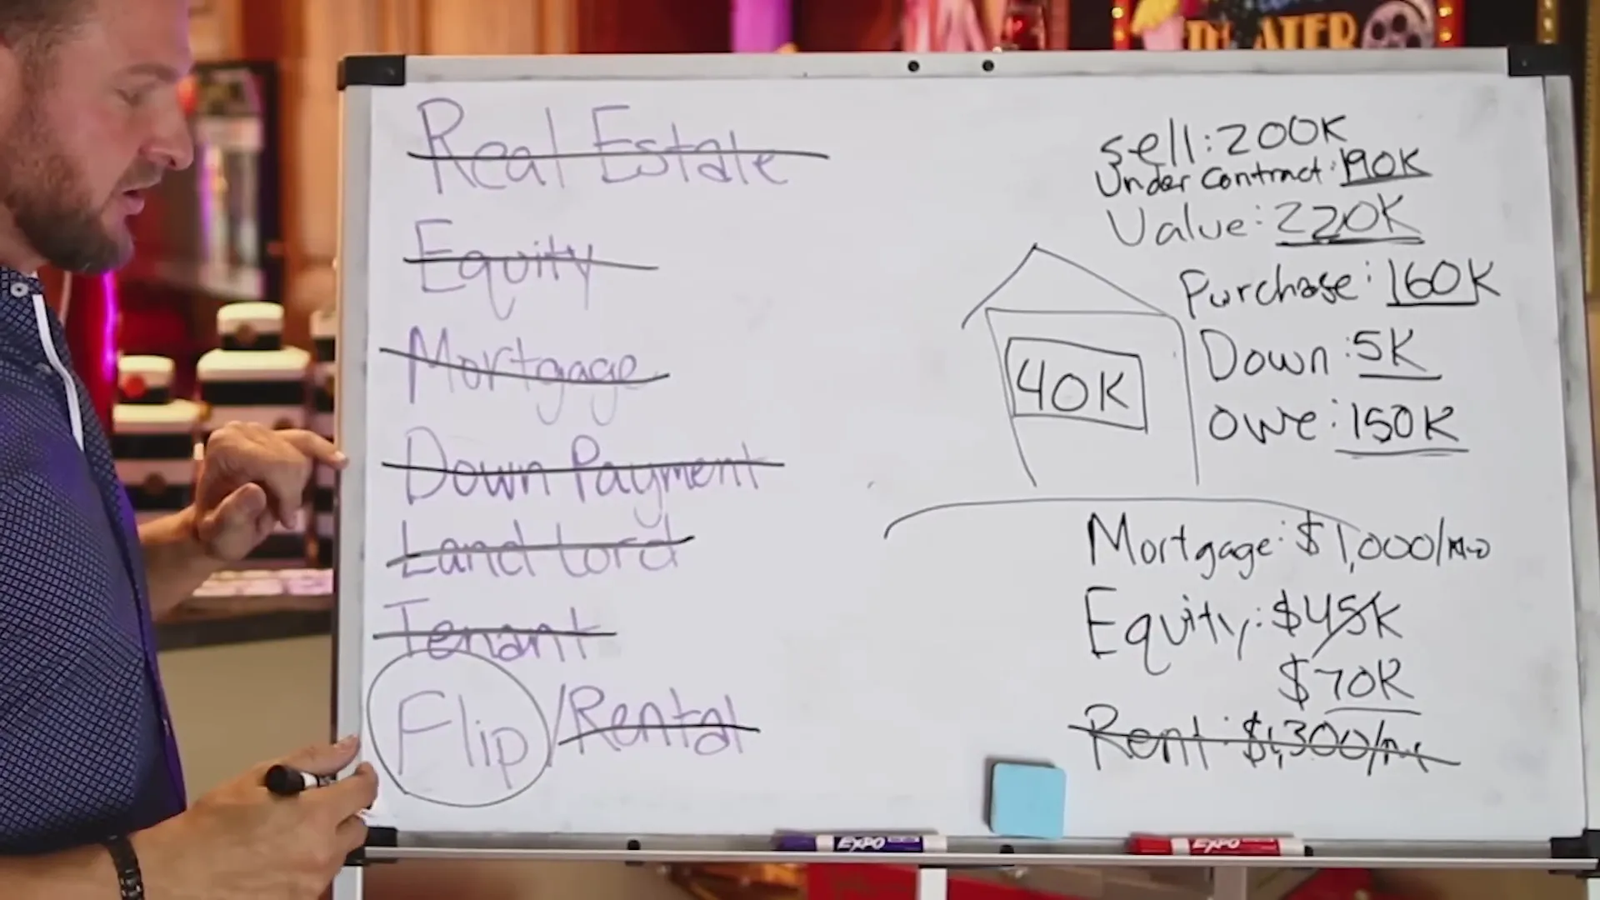 THEATER
Real Estate
Equity
Mortgage
Down Payment
Land Lord
Tenant
Flip/Rental
Sell: 200K
Under Contract: 190K
Value: 220K
Purchase: 160K
Down: 5K
Owe: 150K
40K
Mortgage: $1,000/mo
Equity: $45K
$70K
Rent: $1,300/mo
EXPO
EXPO